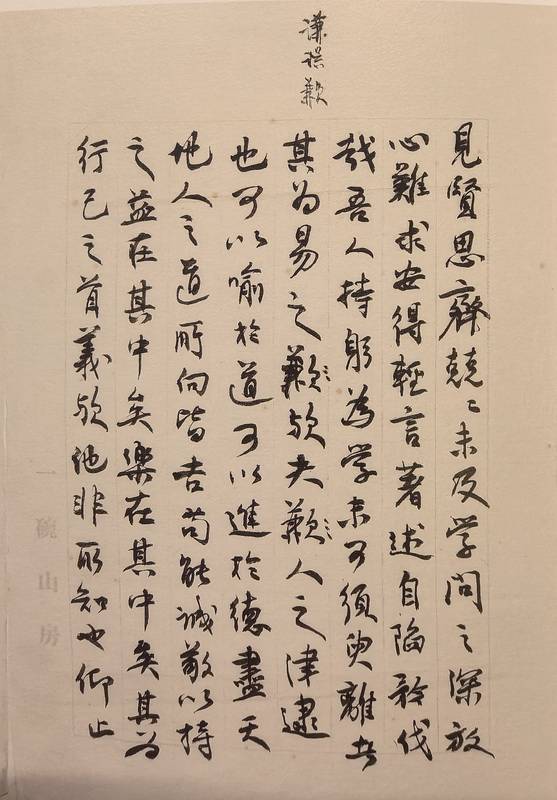 謙歉
見賢思齊兢〻未及学问之深放
心難求安得輕言著述自陷矜伐
哉吾人持躬為学未可須臾離者
其为易之歉〻欤夫歉〻人之津逮
也可以喻於道可以進於德盡天
地人之道所向皆吉苟能誠敬以持
之益在其中矣樂在其中矣其为
行己之首義欤他非所知也仰止
一碗山房